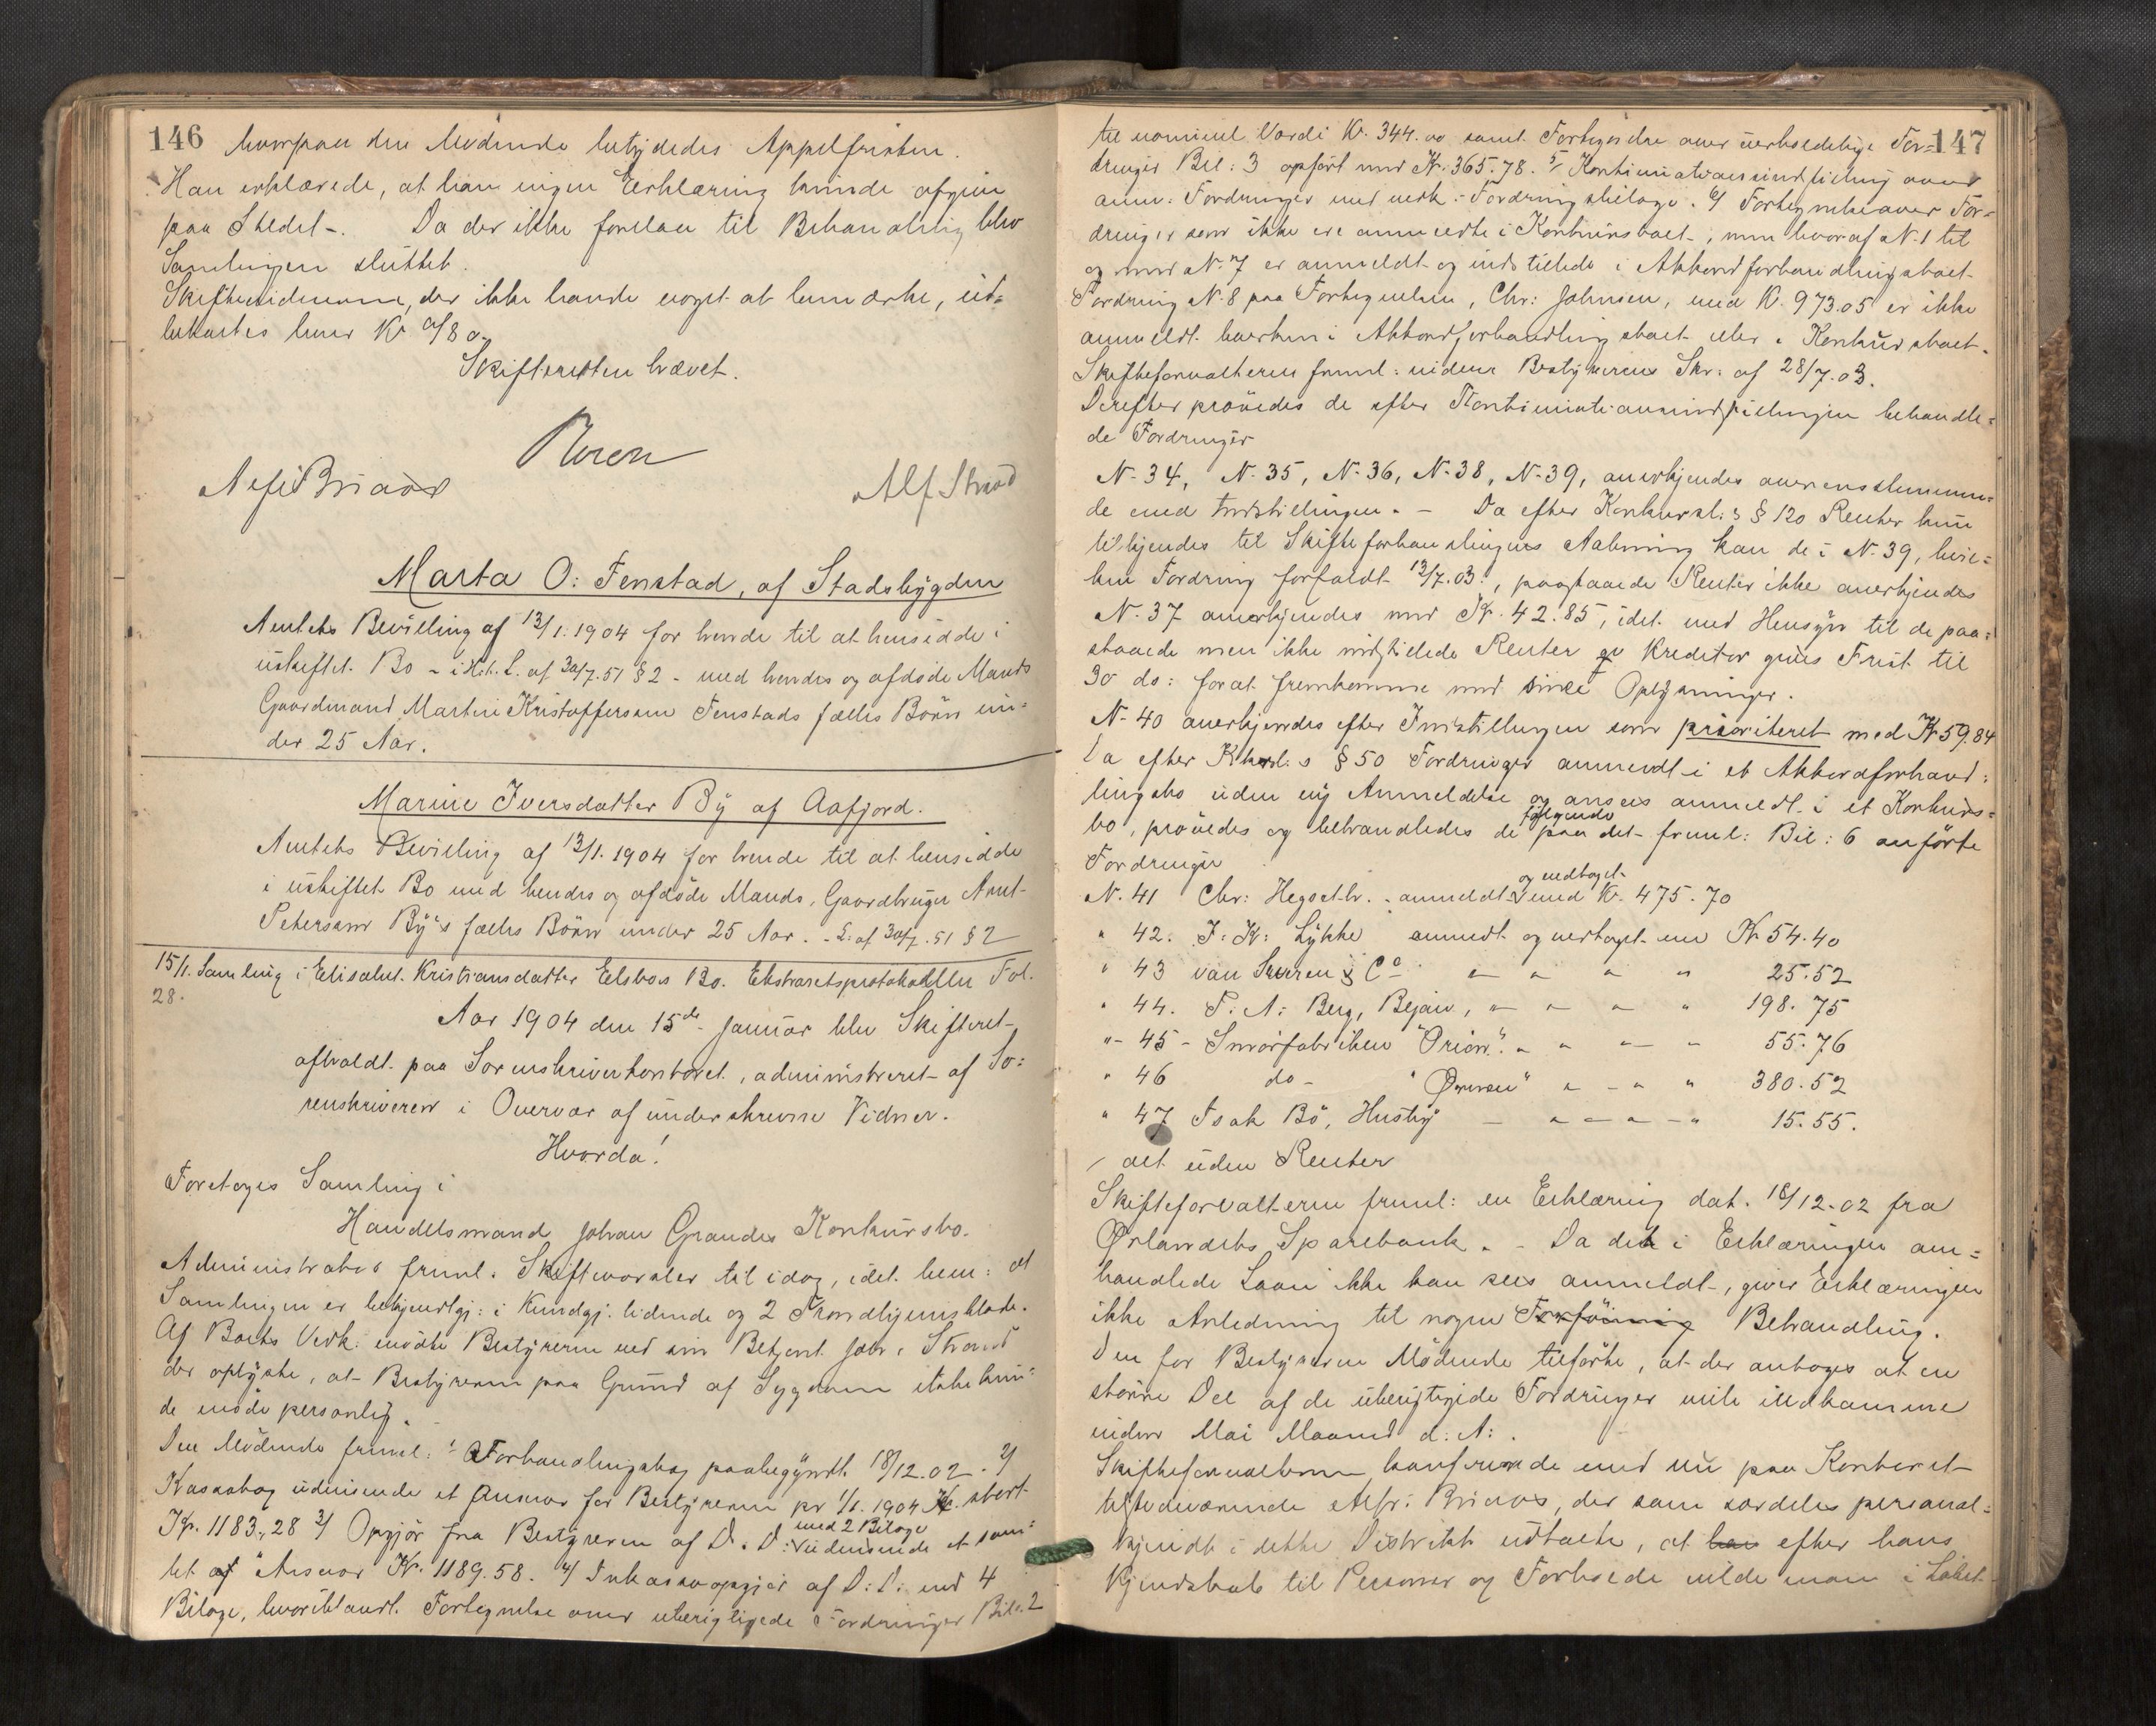 146
hvorpaa den Mødende betydedes Appelfristen.
Han erklærede, at han ingen Erklæring kunde afgive
paa Stedet-. Da der ikke forelaa til Behandling blev
Samlingen sluttet.
Skiftevidnerne, der ikke havde noget at bemærke, ud-
betaltes hver Kr 0/80.
Skifteretten hævet.
Alf Strand
Marta O: Fenstad, af Stadsbygden
Amtets Bevilling af 13/1. 1904 for hende til at hensidde i
uskiftet Bo - i Hht. L. af 30/7.51 § 2 - med hendes og afdøde Mands
Gaardmand Martin Kristoffersen Fenstads fælles Børn un-
der 25 Aar.
Marine Iversdatter By af Aafjord.
Amtets Bevilling af 13/1. 1904 for hende til at hensidde
i uskiftet Bo med hendes og afdøde Mands, Gaardbruger Arnt
Petersen By's fælles Børn under 25 Aar. - L: af 30/7.51 § 2
15/1. Samling i Elisabet Kristiansdatter Elsbos Bo. Ekstraretsprotokollen Fol.
28.
Aar 1904 den 15de Januar blev Skifteret
afholdt paa Sorenskriverkontoret, administreret af So-
renskriveren i Overvær af underskrevne Vidner.
Hvorda!
Foretoges Samling i
Handelsmand Johan Grandes Konkursbo.
Administrator freml: Skiftevarsler til idag, idet bem: at
Samlingen er bekjendtgj: i Kundgj. tidende og 2 Trondhjemsblade.
Af Boets Vedk: mødte Bestyreren ved sin Betjent Joh: Strand
der oplyste, at Bestyreren paa Grund af Sygdom ikke kun-
de møde personlig.
Den Mødende freml: 1/ Forhandlingsbog paabegyndt 18/12.02. 2/
Kassabog udvisende et Ansvar for Bestyreren pr 1/1. 1904 stort
Kr. 1183.28 3/ Opgjør fra Bestyreren af D. D: med 2 Bilage udvisende et sam-
let Ansvar Kr. 1189.58. 4/ Inkassoopgjør af D: D: med 4
Bilage, hvoriblandt Fortegnelse over uberigtigede Fordringer Bil. 2
147
til nominel Værdi Kr. 344.00 samt Fortegnelse over uerholdelige For-
dringer Bil: 3 opført med Kr. 365.78. 5/ Kontinuationsindstilling over
anm: Fordringer med vedk: Fordringsbilage. 6/ Fortegnelse over For-
dringer som ikke ere anmeldte i Konkursboet, men hvoraf N. 1 til
og med N. 7 er anmeldt og indstillede i Akkordforhandlingsboet
Fordring N. 8 paa Fortegnelsen, Chr: Johnsen, med Kr. 973.05 er ikke
anmeldt hverken i Akkordforhandlingsboet eller i Konkursboet.
Skifteforvalteren freml: videre Bestyrerens Skr: af 28/7.03.
Derefter prøvedes de efter Kontinuationsindstillingen behandle-
de Fordringer
N. 34, N. 35, N. 36, N. 38, N. 39, anerkjendes overensstemmen-
de med Indstillingen. - Da efter Konkursl:s § 120 Renter kun
tilkjendes til Skifteforhandlingens Aabning kan de i N. 39, hvil-
ken Fordring forfaldt 13/7.03, paastaaede Renter ikke anerkjendes
N. 37 anerkjendes med Kr. 42.85, idet med Hensyn til de paa-
staaede men ikke indstillede Renter Kreditor gives Frist til
30 ds: for at fremkomme med sine Oplysninger.
N. 40 anerkjendes efter Indstillingen som prioriteret med Kr 59.84
Da efter Kkursl:s § 50 Fordringer anmeldt i et Akkordforhand-
lingsbo uden ny Anmeldelse og ansees anmeldt i et Konkurs-
bo, prøvedes og behandledes de følgende paa det freml: Bil: 6 anførte
Fordringer
N. 41 Chr: Hegseth. - anmeldt og vedtaget med Kr. 475.70
" 42. J: K: Lykke anmeldt og vedtaget med Kr 54.40
" 43 van Severen & Co " " " " 25.52
" 44. P. A: Berg, Bejan, " " " " 198.75
" 45 - Smørfabriken "Orion" " " " " 55.76
" 46 do - "Ørnen" " " " 380.52
" 47 Isak Bø, Husby - " " " 15.55.
alt uden Renter
Skifteforvalteren freml: en Erklæring dat. 18/12.02 fra
Ørlandets Sparebank. - Da det i Erklæringen om-
handlede Laan ikke kan sees anmeldt, giver Erklæringen
ikke Anledning til nogen Forføining Behandling.
Den for Bestyreren Mødende tilførte, at der antoges at en
større Del af de uberigtigede Fordringer vile indkomme
inden Mai Maaned d: A: .
Skifteforvalteren konfererede med nu paa Kontoret
tilstedeværende Alfr: Brinos, der som særdeles personal-
kjendt i dette Distrikt udtalte, at han efter hans
Kjendskab til Personer og Forholde vilde man i Løbet